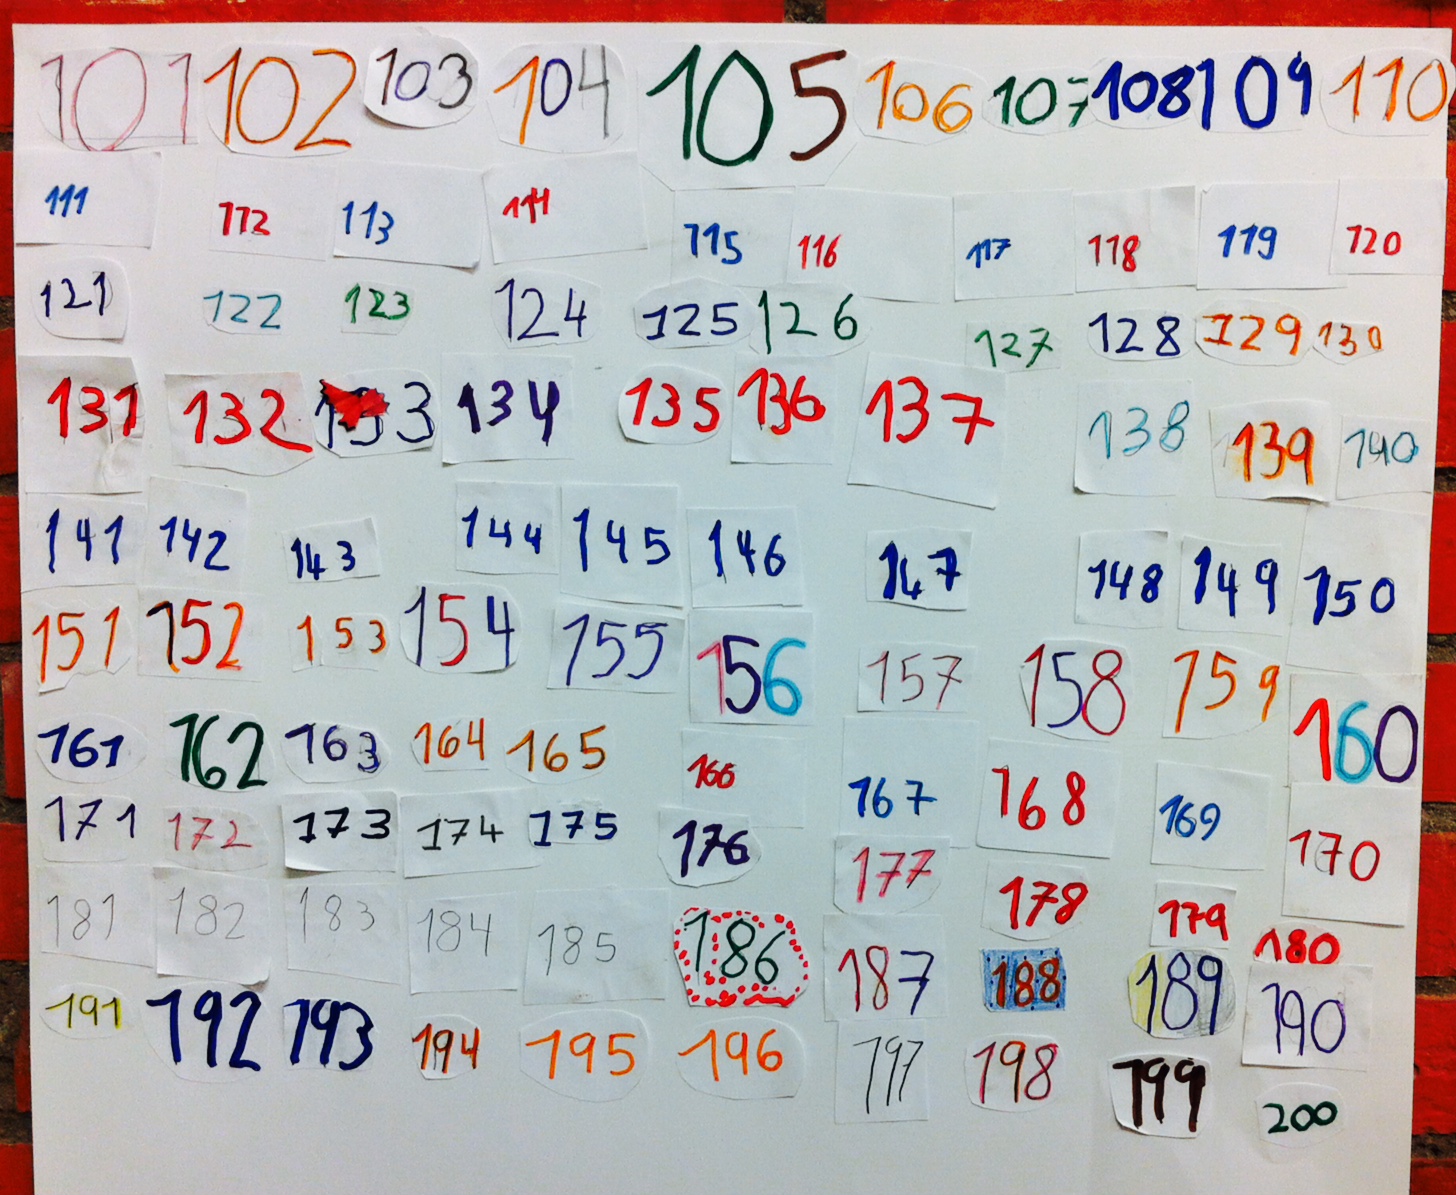 101 102 103 104 105 106 107 108 109 110
111 112 113 114 115 116 117 118 119 120
121 122 123 124 125 126 127 128 129 130
131 132 133 134 135 136 137 138 139 140
141 142 143 144 145 146 147 148 149 150
151 152 153 154 155 156 157 158 159 160
161 162 163 164 165 166 167 168 169 170
171 172 173 174 175 176 177 178 179 180
181 182 183 184 185 186 187 188 189 190
191 192 193 194 195 196 197 198 199 200